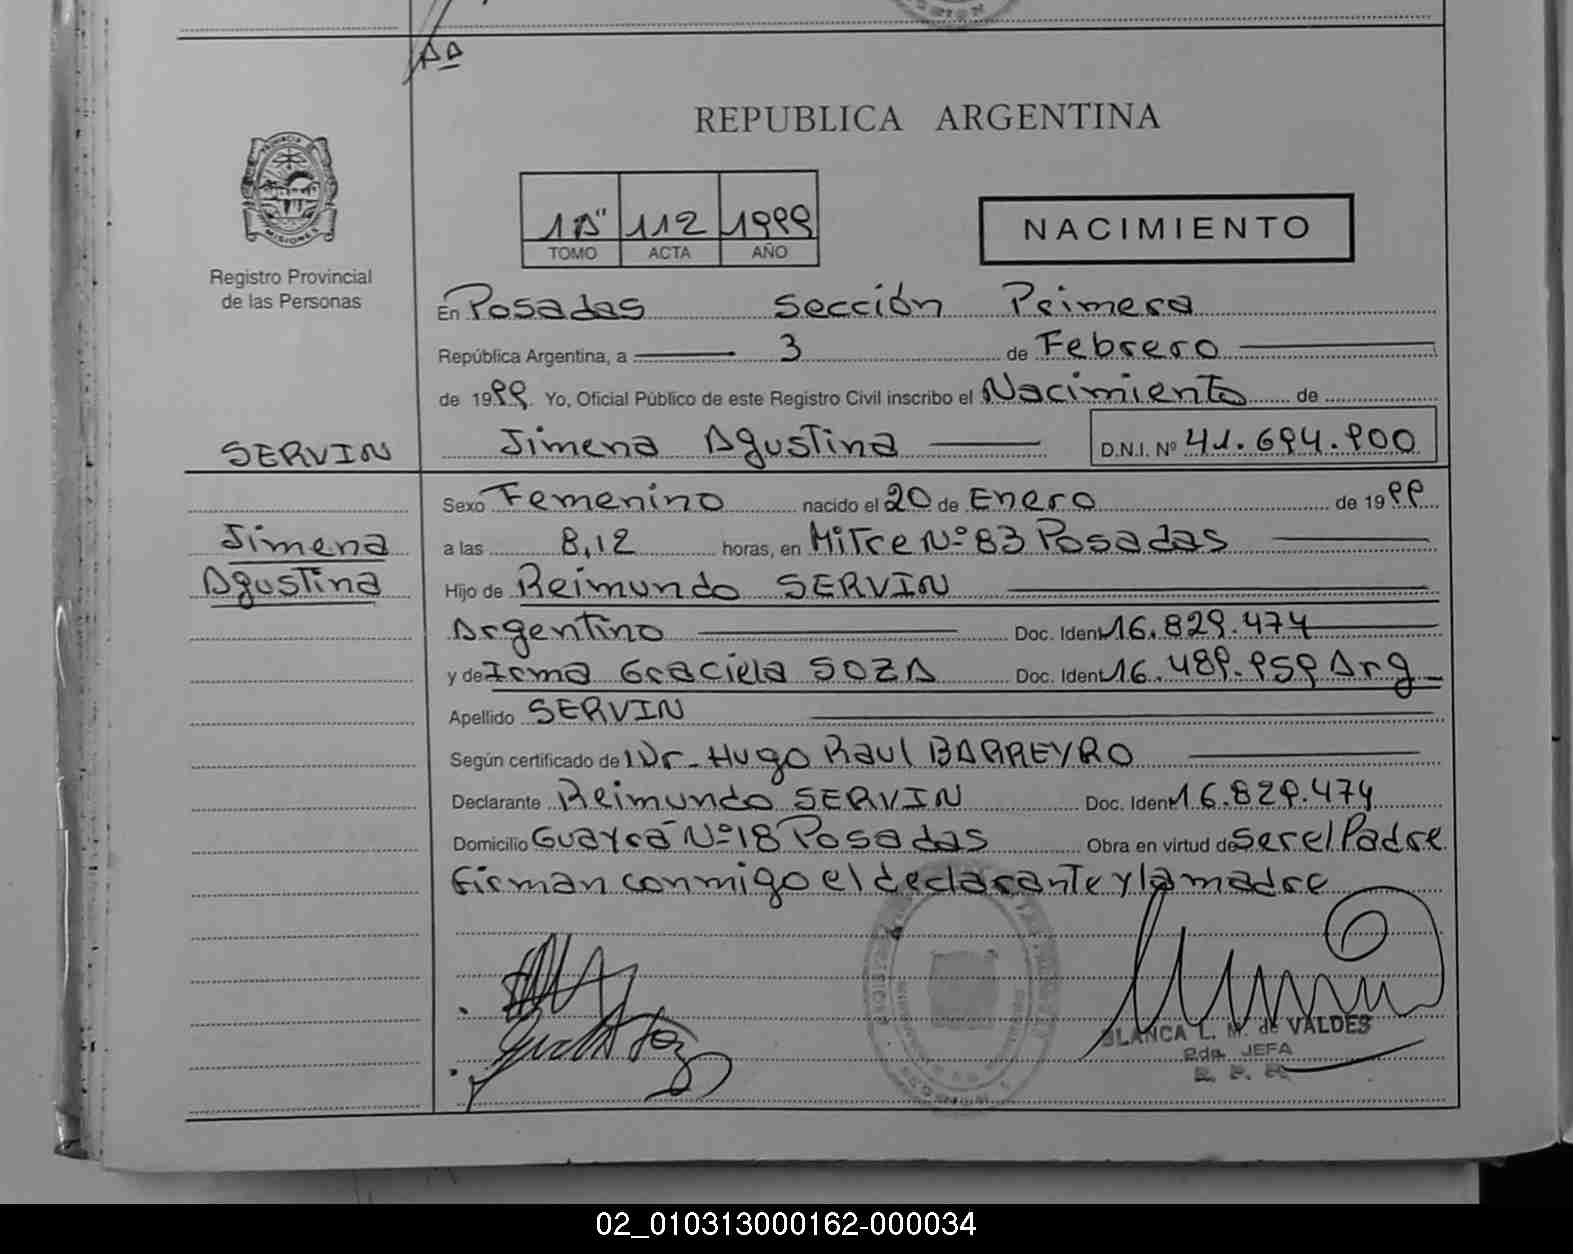 REPUBLICA ARGENTINA
PROVINCIA DE
MISIONES
Registro Provincial
de las Personas
1 A" 112 1999
TOMO ACTA AÑO
NACIMIENTO
En Posadas Sección Primera
República Argentina, a 3 de Febrero
de 1999 Yo, Oficial Público de este Registro Civil inscribo el Nacimiento de
SERVIN
Jimena Agustina D.N.I. Nº 41.694.900
Sexo Femenino nacido el 20 de Enero de 1999
Jimena
Agustina
a las 8,12 horas, en Mitre Nº 83 Posadas
Hijo de Reimundo SERVIN
Argentino Doc. Ident 16.829.474
y de Irma Graciela SOZA Doc. Ident 16.489.959 Arg
Apellido SERVIN
Según certificado de Dr. Hugo Raul BARREYRO
Declarante Reimundo SERVIN Doc. Ident 16.829.474
Domicilio Guayrá Nº 18 Posadas Obra en virtud de Ser el Padre
firman conmigo el declarante y la madre
BLANCA L. M. de VALDES
JEFA
02_010313000162-000034